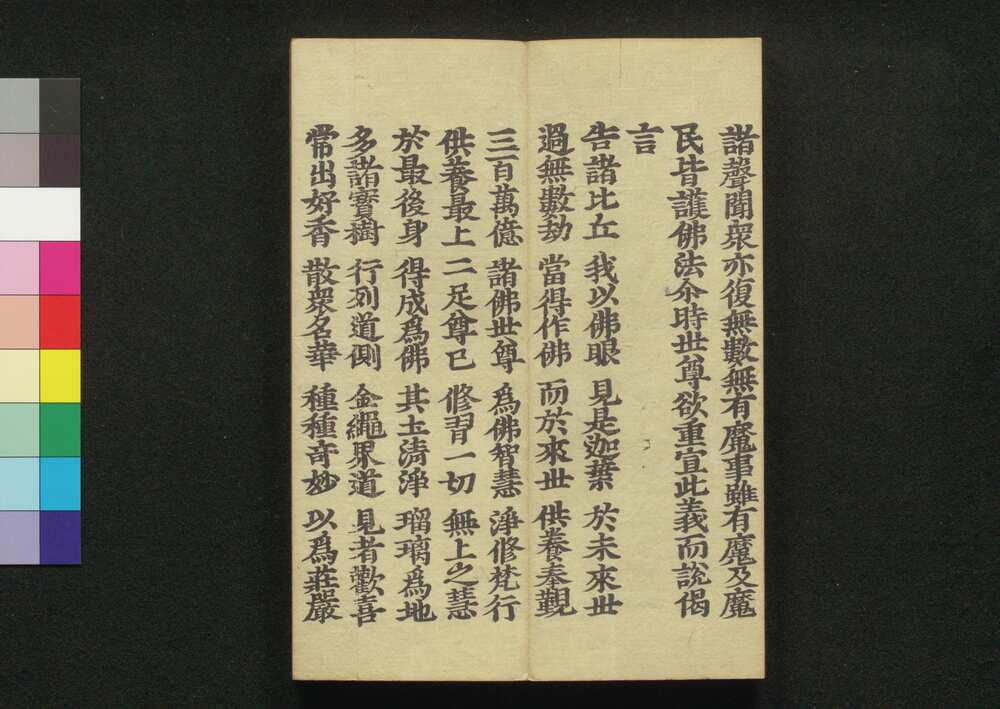 諸聲聞衆亦復無數無有魔事雖有魔及魔
民皆護佛法尒時世尊欲重宣此義而說偈
言
告諸比丘 我以佛眼 見是迦葉 於未來世
過無數劫 當得作佛 而於來世 供養奉覲
三百萬億 諸佛世尊 爲佛智慧 淨修梵行
供養最上 二足尊已 修習一切 無上之慧
於最後身 得成爲佛 其土清淨 瑠璃爲地
多諸寶樹 行列道側 金繩界道 見者歡喜
常出好香 散衆名華 種種奇妙 以爲莊嚴